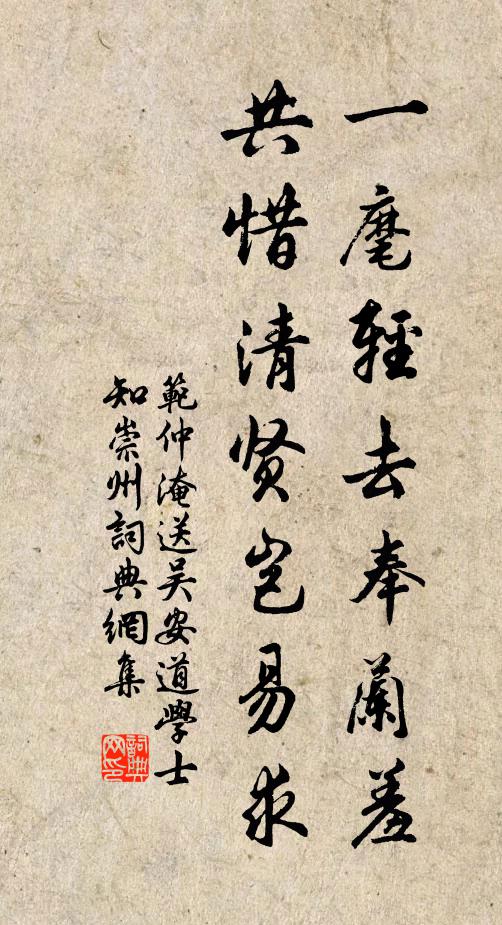 一麾輕去奉蘭羞
共惜清贤岂易求
範仲淹送吴安道學士
知崇州詞典網集
詞典
网印